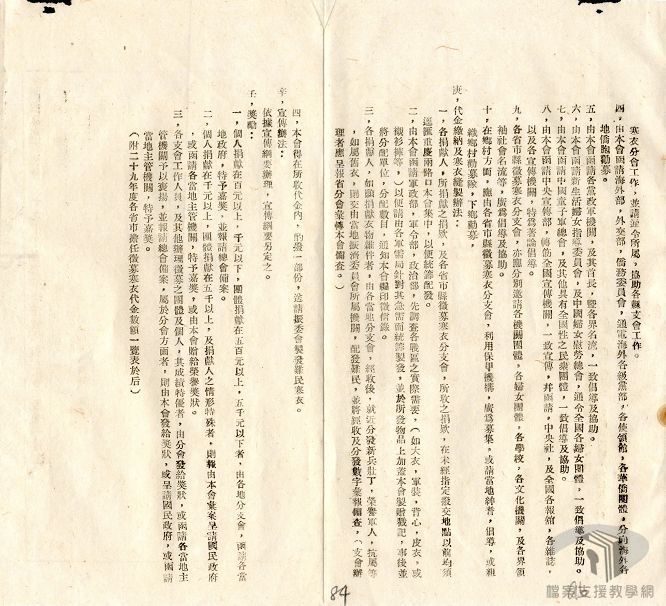 寒衣分會工作，並請通令所屬，協助各級支會工作。
四、由本會函請海外部，外交部，僑務委員會，通電海外各級黨部，各使領館，各華僑團體，分向海外各
地僑胞勸募。
五、由本會函請各黨政軍機關，及其首長，暨各界名流，一致倡導及協助。
六、由本會函請新生活婦女指導委員會，及中國婦女慰勞總會，通令全國各婦女團體，一致倡導及協助。
七、由本會函請中央童子軍總會，及其他具有全國性之民眾團體，一致倡導及協助。
八、由本會函請中央宣傳部，轉飭全國宣傳機關，一致宣傳，幷函請，中央社，及全國各報館，各雜誌，
以及各宣傳機關，特為著論倡導。
九、各省市縣徵募寒衣分支會，亦應分別邀請各機關團體，各婦女團體，各學校，各文化機關，及各界領
袖社會名流等，廣為倡導及協助。
十、在鄉村方面，應由各省市縣徵募寒衣分支會，利用保甲機構，廣為募集。或請當地紳耆，倡導，或組
織鄉村勸募隊，下鄉勸募。
庚、代金繳納及寒衣縫製辦法：
一、各捐獻人，所捐獻之捐款，及各省市縣徵募寒衣分支會，所收之捐款，在未經指定撥交地點以前均須
逕匯重慶兩路口本會集中，以便統籌配發。
二、由本會函請軍政部，軍令部，政治部，先調查各戰區之實際需要，（如大衣，軍裝，背心，皮衣，或
襯衫褲等，）以便請由各軍需局針對其急需而統籌製發，並於所發物品上加蓋本會製贈戳記，事後並
將分配單位，分配數目，通知本會編印徵信錄。
三、各捐獻人，如願捐獻衣物雜件者，由各當地分支會，經收後，就近分發新兵壯丁，榮譽軍人，抗屬等
，如屬舊衣，則交由當地振濟委員會所屬機關，配發難民，並將經收及分發數字彙報備查，（支會辦
理者應呈報省分會彙轉本會備查。）
四、本會得在所收代金內，酌撥一部份，送請振委會製發難民寒衣。
辛、宣傳辦法：
依據宣傳綱要辦理，宣傳綱要另定之。
壬、獎勵：
一、個人捐獻在百元以上，千元以下，團體捐獻在五百元以上，五千元以下者，由各地分支會，函請各當
地政府，特予嘉獎，並報請總會備案。
二、個人捐獻在千元以上，團體捐獻在五千以上，及捐獻人之情形特殊者，則報由本會彙案呈請國民政府
，或函請各當地主管機關，特予嘉獎，或由本會贈給榮譽獎狀。
三、各支會工作人員，及其他辦理徵募之團體及個人，其成績特優者，由分會發給獎狀，或函請各當地主
管機關予以褒揚，並報請總會備案，屬於分會方面者，則由本會發給獎狀，或呈請國民政府，或函請
當地主管機關，特予嘉獎。
（附二十九年度各省市擔任徵募寒衣代金數額一覽表於后）
84
檔案支援教學網